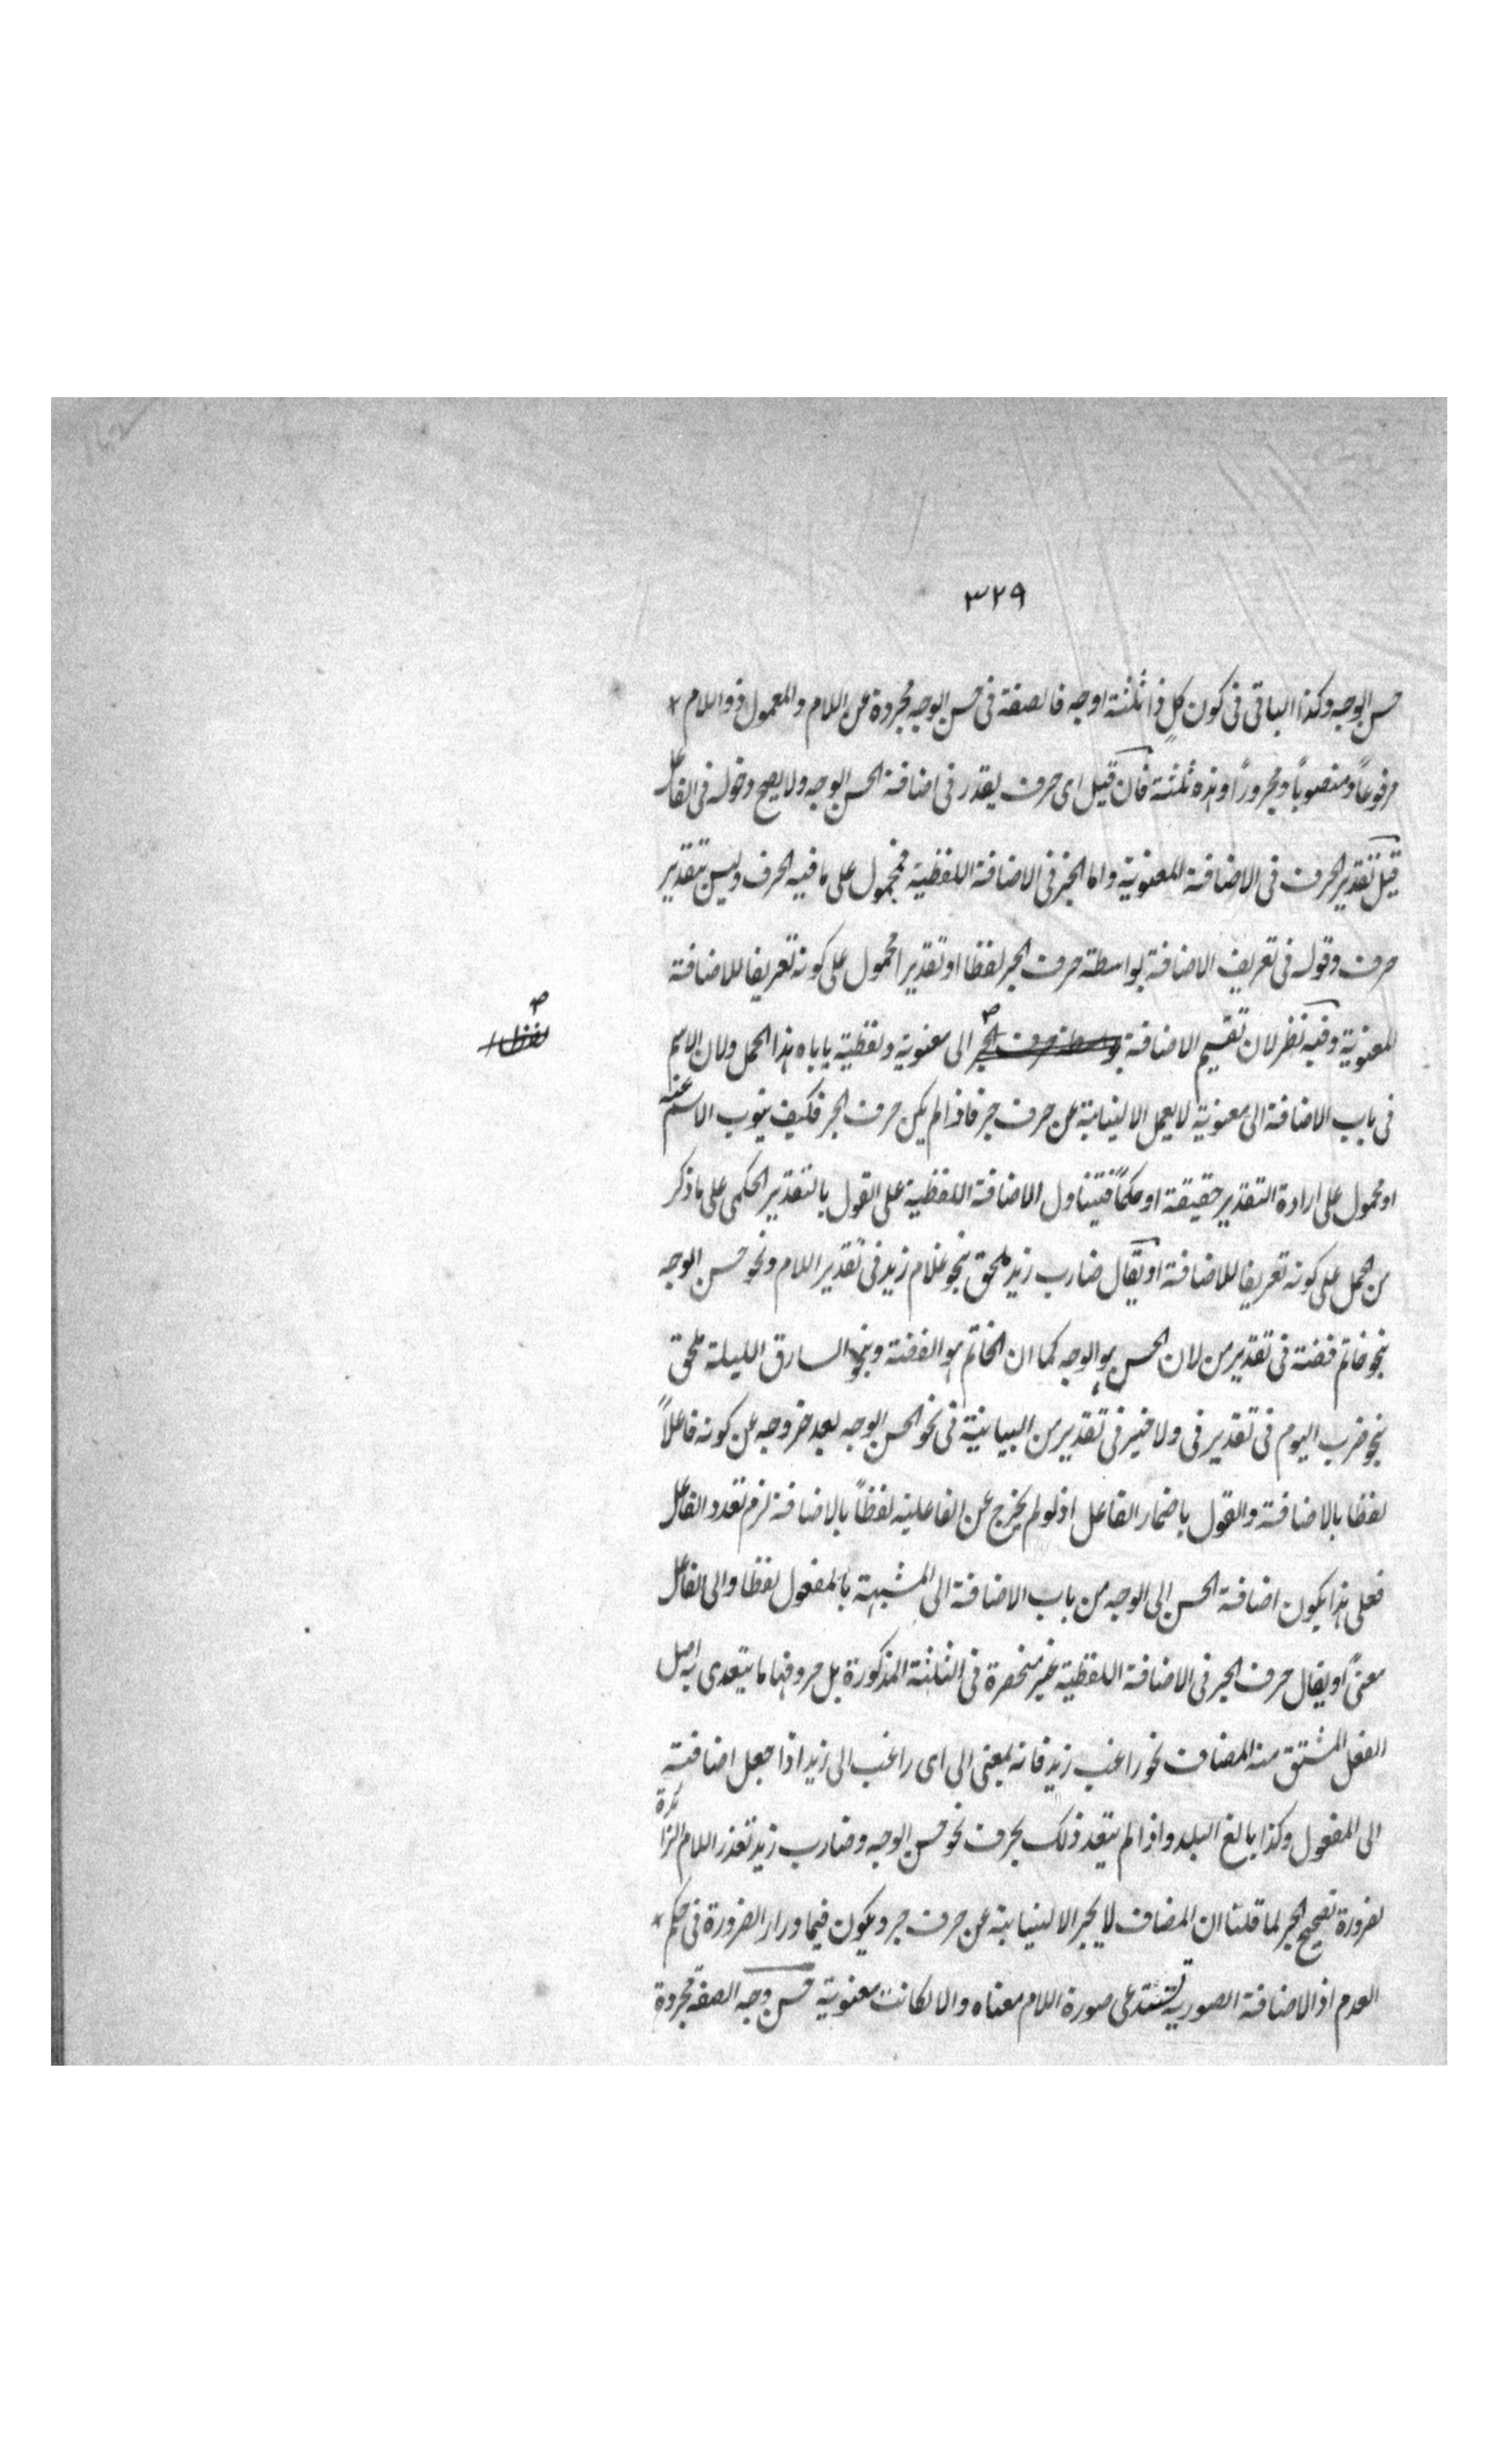 ٣٢٩
حسن الوجه وكذا الباقى فى كون كلٍ ذا ثلثة اوجه فالصفة فى حسن الوجه مجردة عن اللام والمعمول ذو اللام
مرفوعاً ومنصوباً ومجروراً وهذه ثلثة فان قيل اى حرف يقدر فى اضافة الحسن الوجه ولا يصح دخوله فى الفاعل
قيل تقدير الحرف فى الاضافة المعنوية واما الجر فى الاضافة اللفظية فمحمول على ما فيه الحرف وليس بتقدير
حرف وقوله فى تعريف الاضافة بواسطة حرف الجر لفظا او تقديرا محمول على كونه تعريفا للاضافة
المعنوية وفيه نظر لان تقسيم الاضافة بواسطة حرف الجر الى معنوية ولفظية ياباه هذا الحمل ولان الاسم
فى باب الاضافة الى معنوية لا يعمل الا لنيابة عن حرف جر فاذا لم يكن حرف الجر فكيف ينوب الاسم عنه
او محمول على ارادة التقدير حقيقة او حكماً فتيناول الاضافة اللفظية على القول بالتقدير الحكمى على ما ذكر
من حمل على كونه تعريفا للاضافة او يقال ضارب زيد ملحق بنحو غلام زيد فى تقدير اللام ونحو حسن الوجه
بنحو خاتم فضة فى تقدير من لان الحسن هو الوجه كما ان الخاتم هو الفضة وبنحو السارق الليلة ملحق
بنحو ضرب اليوم فى تقدير فى ولا ضير فى تقدير من البيانية فى نحو الحسن الوجه بعد خروجه عن كونه فاعلاً
لفظا بالاضافة والقول باضمار الفاعل اذ لو لم يخرج عن الفاعلية لفظاً بالاضافة لزم تعدد الفاعل
فعلى هذا يكون اضافة الحسن الى الوجه من باب الاضافة الى المشبهة بالمفعول لفظا والى الفاعل
معنىً او يقال حرف الجر فى الاضافة اللفظية غير منحصرة فى الثلثة المذكورة بل حروفها ما يتعدى به اصل
الفعل المشتق منه المضاف نحو راغب زيد فانه بمعنى الى اى راغب الى زيد اذا جعل اضافته
الى المفعول وكذا بالغ البلد واذا لم يتعد ذلك بحرف نحو حسن الوجه وضارب زيد تعذر اللام الزائدة
لضرورة تصحيح الجر لما قلنا ان المضاف لا يجر الا لنيابته عن حرف جر ويكون فيما وراء الضرورة فى حكم
العدم اذ الاضافة الصورية تستدعى صورة اللام معناه والا لكانت معنوية حسن وجه الصفة مجردة